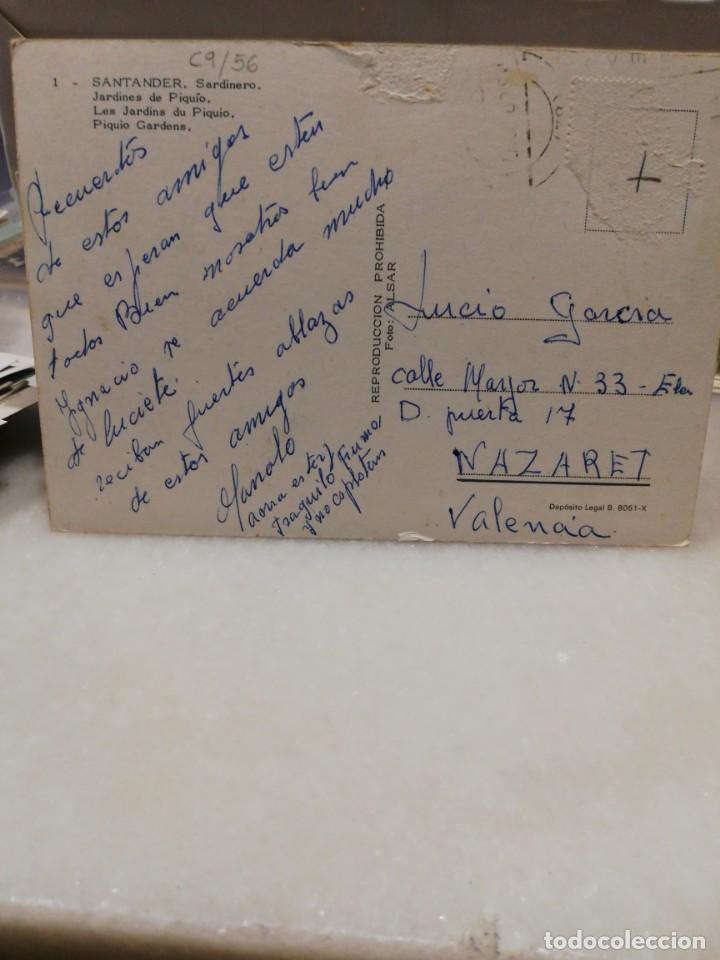 C9/56
1 - SANTANDER. Sardinero.
Jardines de Piquío.
Les Jardins du Piquio.
Piquio Gardens.
Recuerdos
de estos amigos
que esperan que esten
todos Bien nosotros bien
Ygnacio se acuerda mucho
de luciete.
reciban fuertes ablazas
de estos amigos
Manolo
REPRODUCCION PROHIBIDA
Foto: ALSAR
Lucio Garcia
calle Mayor N. 33 -
D. puerta 17
NAZARET
Valencia.
Depósito Legal B. 8051-X
todocoleccion